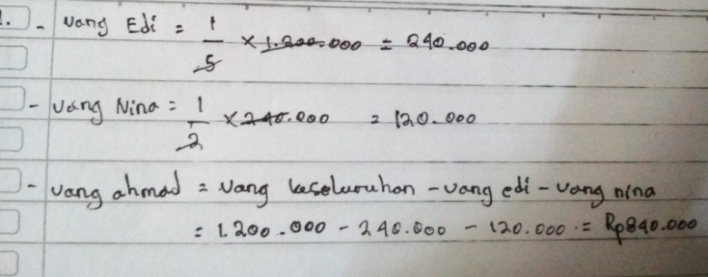 1. - Uang Edi = 1/5 × 1.200.000 = 240.000
- Uang Nina = 1/2 × 240.000 = 120.000
- Uang ahmad = Uang keseluruhan - uang edi - uang nina
= 1.200.000 - 240.000 - 120.000 = Rp840.000